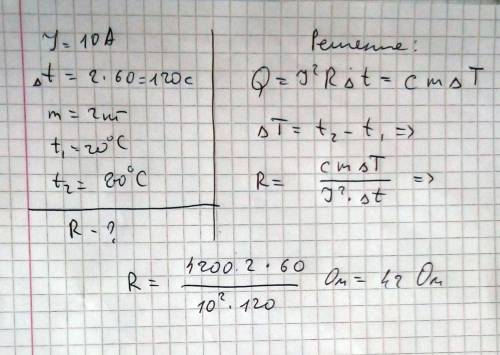 J = 10 A
Δt = 2·60 = 120 c
m = 2 кг
t₁ = 20°C
t₂ = 80°C
R - ?
Решение:
Q = J² R Δt = c m ΔT
ΔT = t₂ - t₁ =>
R = cmΔT / J²·Δt =>
R = 4200·2·60 / 10²·120 Ом = 42 Ом